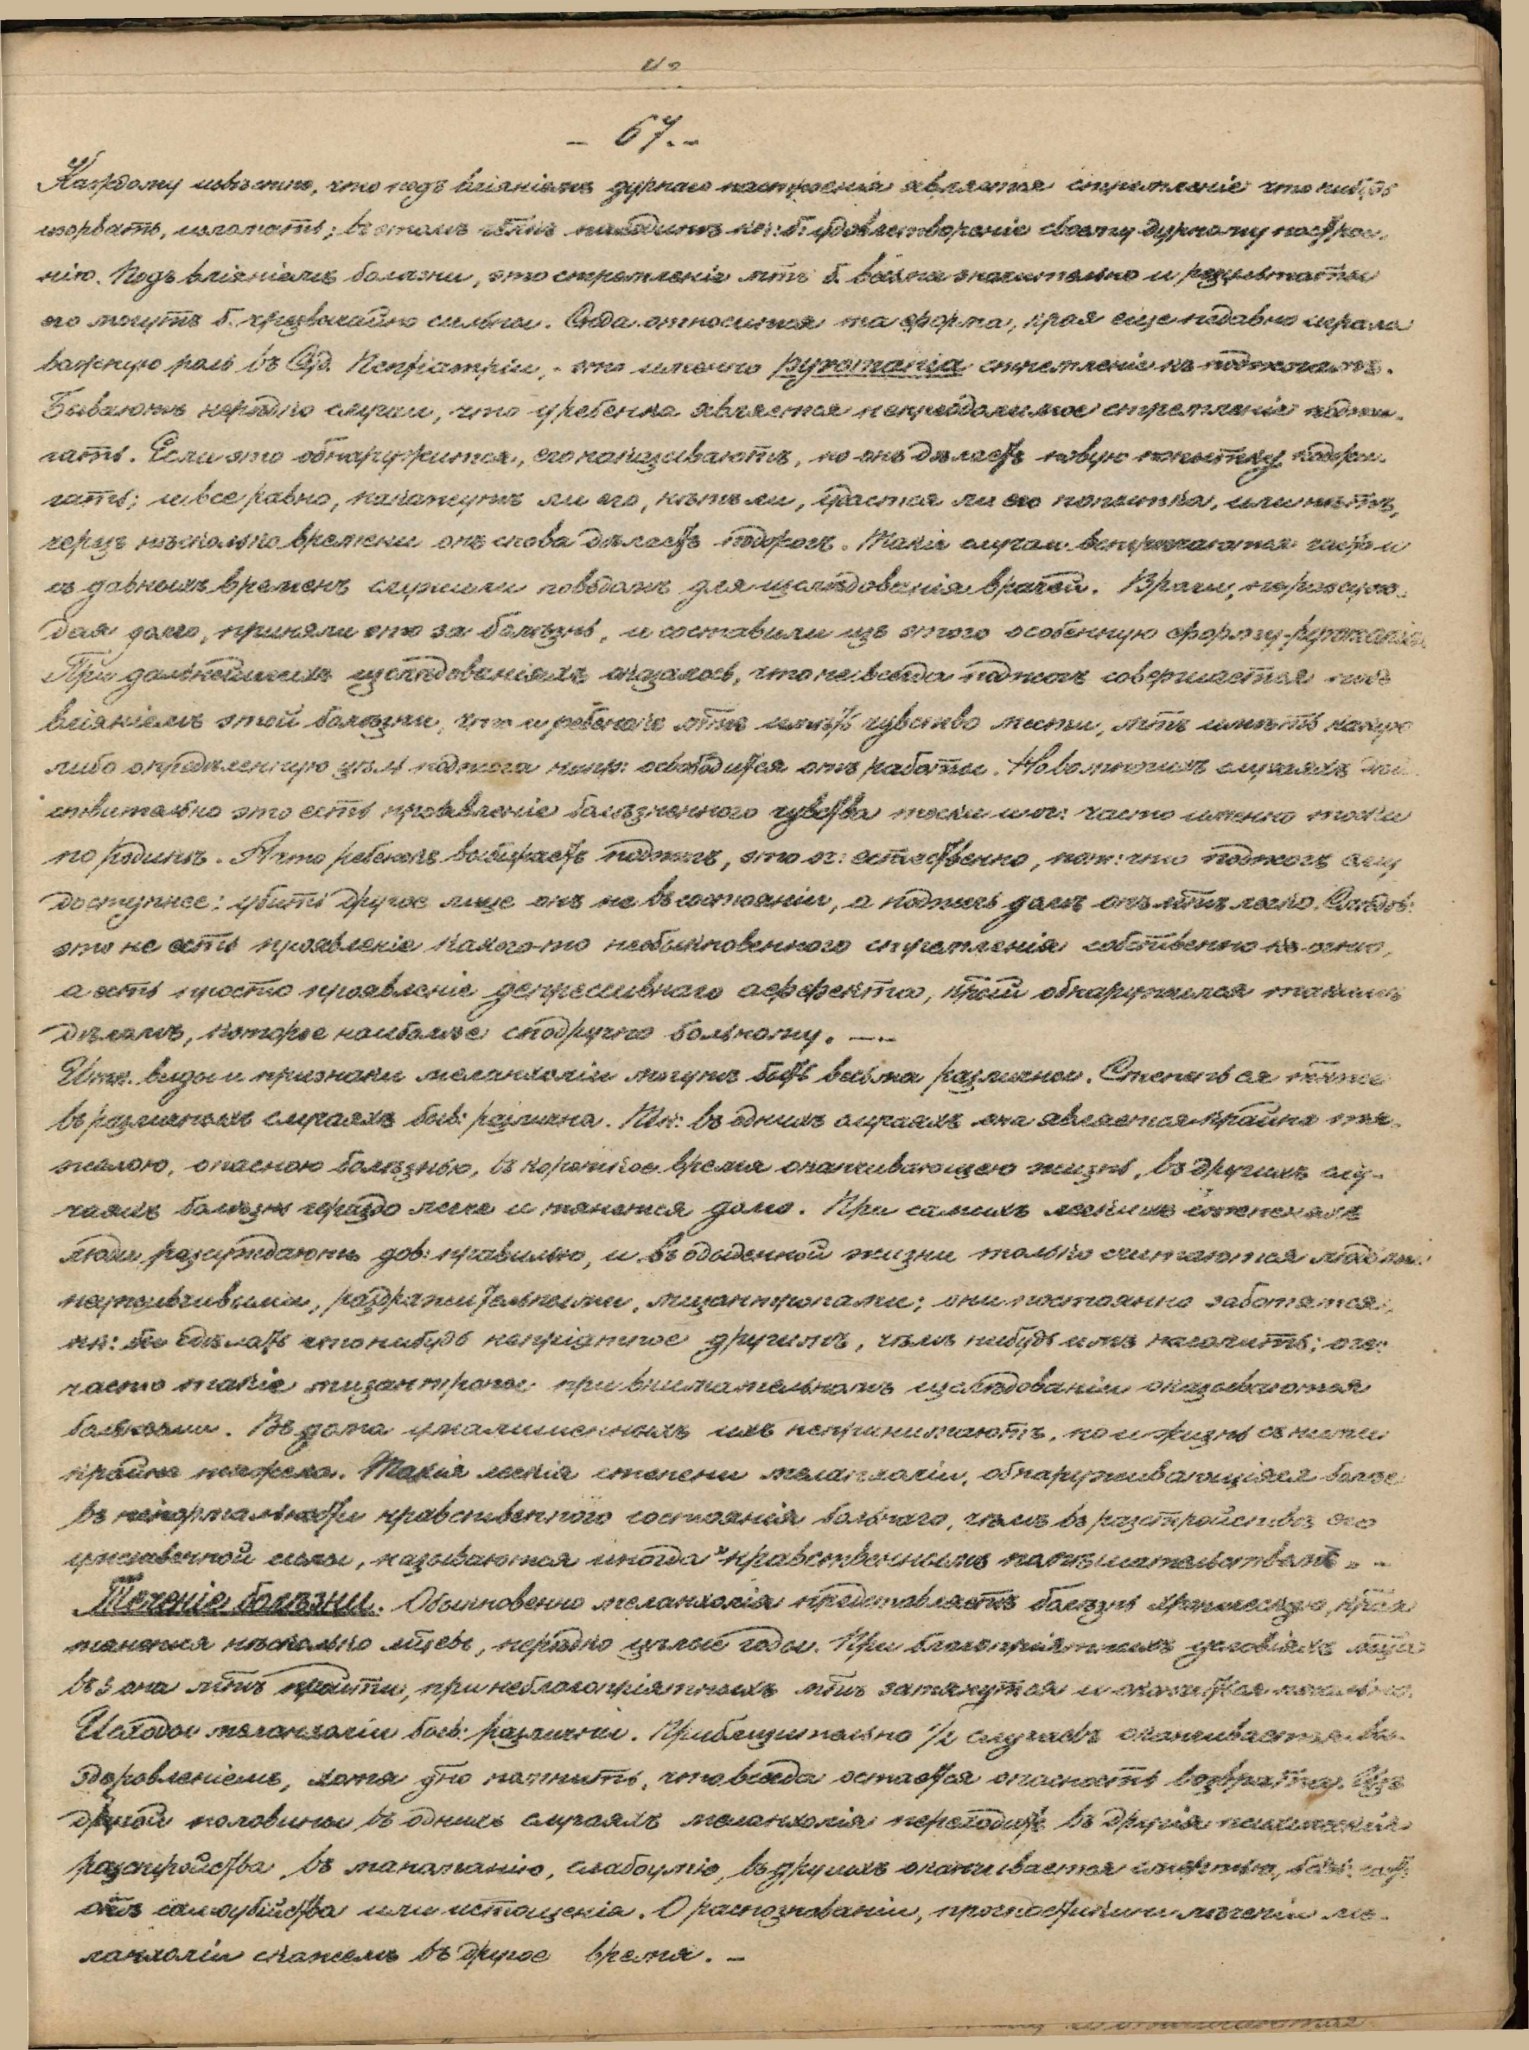 - 67. -
Каждому извѣстно, что подъ вліяніемъ дурнаго настроенія является стремленіе что нибудь
изорвать, изломать; въ этомъ чѣлкъ находитъ кк: б. удовлетвореніе своему дурному настрое-
нію. Подъ вліяніемъ болѣзни, это стремленіе мтъ б. весьма значительно и результаты
его могутъ б. чрезвычайно сильны. Сюда относится та форма, края еще недавно играла
важную роль въ Суд. Психіатріи, - это именно pyromania стремленіе къ поджогамъ.
Бываютъ нерѣдко случаи, что у ребенка является непреодолимое стремленіе поджи-
гать. Если это обнаружится, его наказываютъ, но онъ дѣлаетъ новую попытку поджи-
гать; и все равно, накажутъ ли его, нѣтъ ли, удастся ли его попытка, или нѣтъ,
черезъ нѣсколько времени онъ снова дѣлаетъ поджогъ. Такіе случаи встрѣчаются часто и
съ давныхъ временъ служили поводомъ для изслѣдованія врачей. Врачи, не разсуж-
дая долго, приняли это за болѣзнь, и составили изъ этого особенную форму - pyromania.
При дальнѣйшихъ изслѣдованіяхъ оказалось, что не всегда поджогъ совершается подъ
вліяніемъ этой болѣзни, что и ребенокъ мтъ имѣть чувство мести, мтъ имѣть какую
либо опредѣленную цѣль поджога напр: освободиться отъ работы. Но во многихъ случаяхъ дѣй-
ствительно это есть проявленіе болѣзненного чувства тоски и оч: часто именно тоски
по родинѣ. А что ребенокъ выбираетъ поджогъ, это оч: естественно, пот: что поджогъ ему
доступнѣе: убить другое лице онъ не въ состояніи, а поджечь домъ онъ мтъ легко. Слѣдов:
это не есть проявленіе какого-то необыкновенного стремленія собственно къ огню,
а есть просто проявленіе депрессивнаго аффекта, крый обнаружился такимъ
дѣломъ, которое наиболѣе сподручно больному. —
Итк. виды и признаки меланхоліи могутъ быть весьма различны. Степень ея также
въ различныхъ случаяхъ быв: различна. Тк: въ однихъ случаяхъ она является крайне тя-
желою, опасною болѣзнью, въ короткое время оканчивающею жизнь, въ другихъ слу-
чаяхъ болѣзнь гораздо легче и тянется долго. При самыхъ легкихъ степеняхъ
люди разсуждаютъ дов: правильно, и въ обыденной жизни только считаются людьми
неуживчивыми, раздражительными, мизантропами; они постоянно заботятся,
кк: бы сдѣлать что нибудь непріятное другимъ, чѣмъ нибудь имъ насолить; оч:
часто такіе мизантропы при внимательномъ изслѣдованіи оказываются
больными. Въ дома умалишенныхъ ихъ не принимаютъ, но и жизнь съ ними
крайне тяжела. Такія легкія степени меланхоліи, обнаруживающіяся болѣе
въ ненормальности нравственного состоянія больнаго, чѣмъ въ разстройствѣ его
умственной силы, называются иногда "нравственнымъ помѣшательствомъ". -
Теченіе болѣзни. Обыкновенно меланхолія представляетъ болѣзнь хроническую, края
тянется нѣсколько мцевъ, нерѣдко цѣлые годы. При благопріятныхъ условіяхъ мца
въ 3 она мтъ пройти, при неблагопріятныхъ мтъ затянуться и окончиться печально.
Исходы меланхоліи быв: различны. Приблизительно ½ случаевъ оканчивается вы-
здоровленіемъ, хотя дно помнить, что всегда остается опасность возврата. Изъ
другой половины въ однихъ случаяхъ меланхолія переходитъ въ другія психическія
разстройства, въ мономанію, слабоуміе, въ другихъ оканчивается смертью,
отъ самоубійства или истощенія. О распознованіи, прогностикѣ и леченіи ме-
ланхоліи скажемъ въ другое время. -